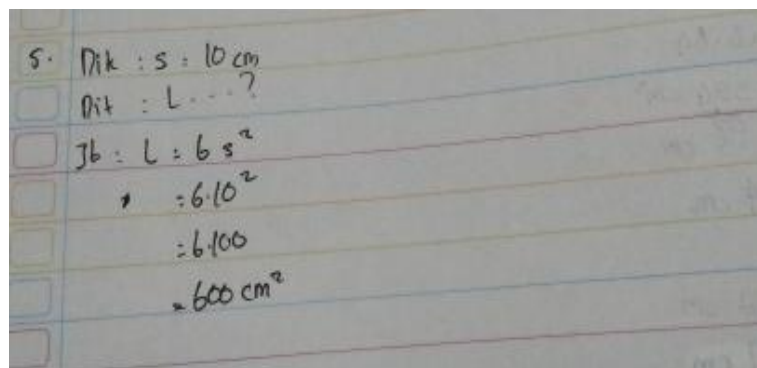 5. Dik : s = 10 cm
Dit : L ... ?
Jb : L = 6 s²
= 6.10²
= 6.100
= 600 cm²